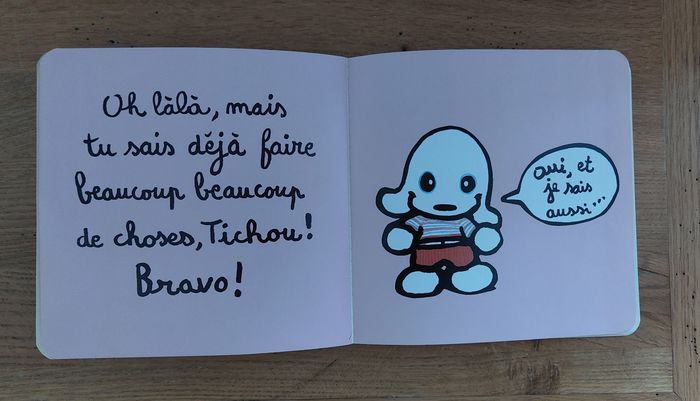 Oh làlà, mais
tu sais déjà faire
beaucoup beaucoup
de choses, Tichou!
Bravo!
oui, et
je sais
aussi...